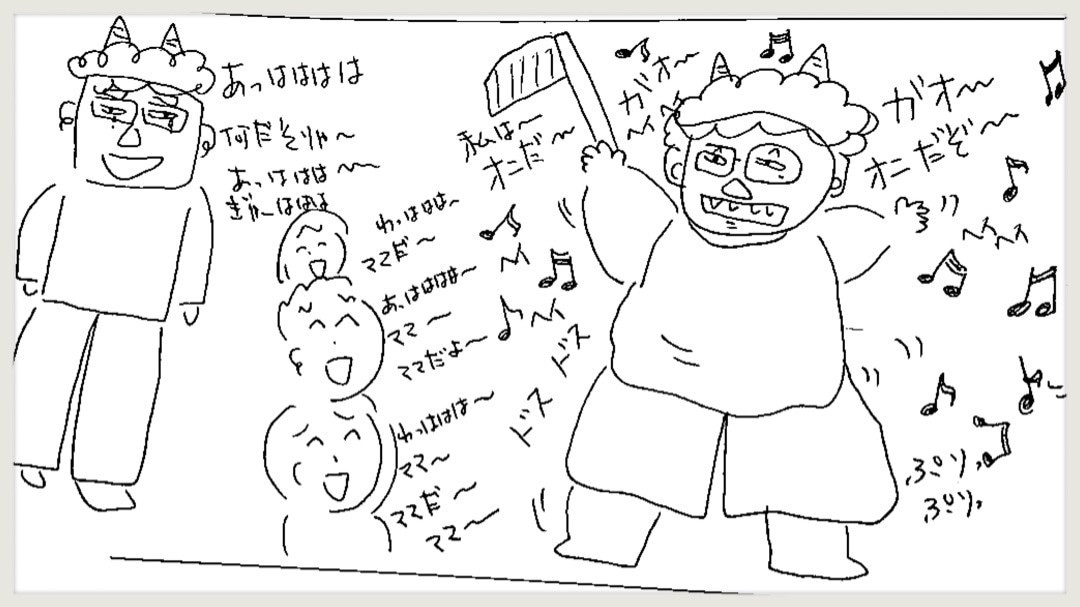 あっはははは
何だそりゃ〜
あっははは〜〜
ぎゃーははは
わっははは〜
ママだ〜
あっはははは〜
ママ〜
ママだよ〜
わっははは〜
ママ〜
ママだ〜
ママ〜
私は〜
オニだ〜
ガオ〜
ガオ〜
オニだぞ〜
ドス
ドス
ぷりっ
ぷりっ